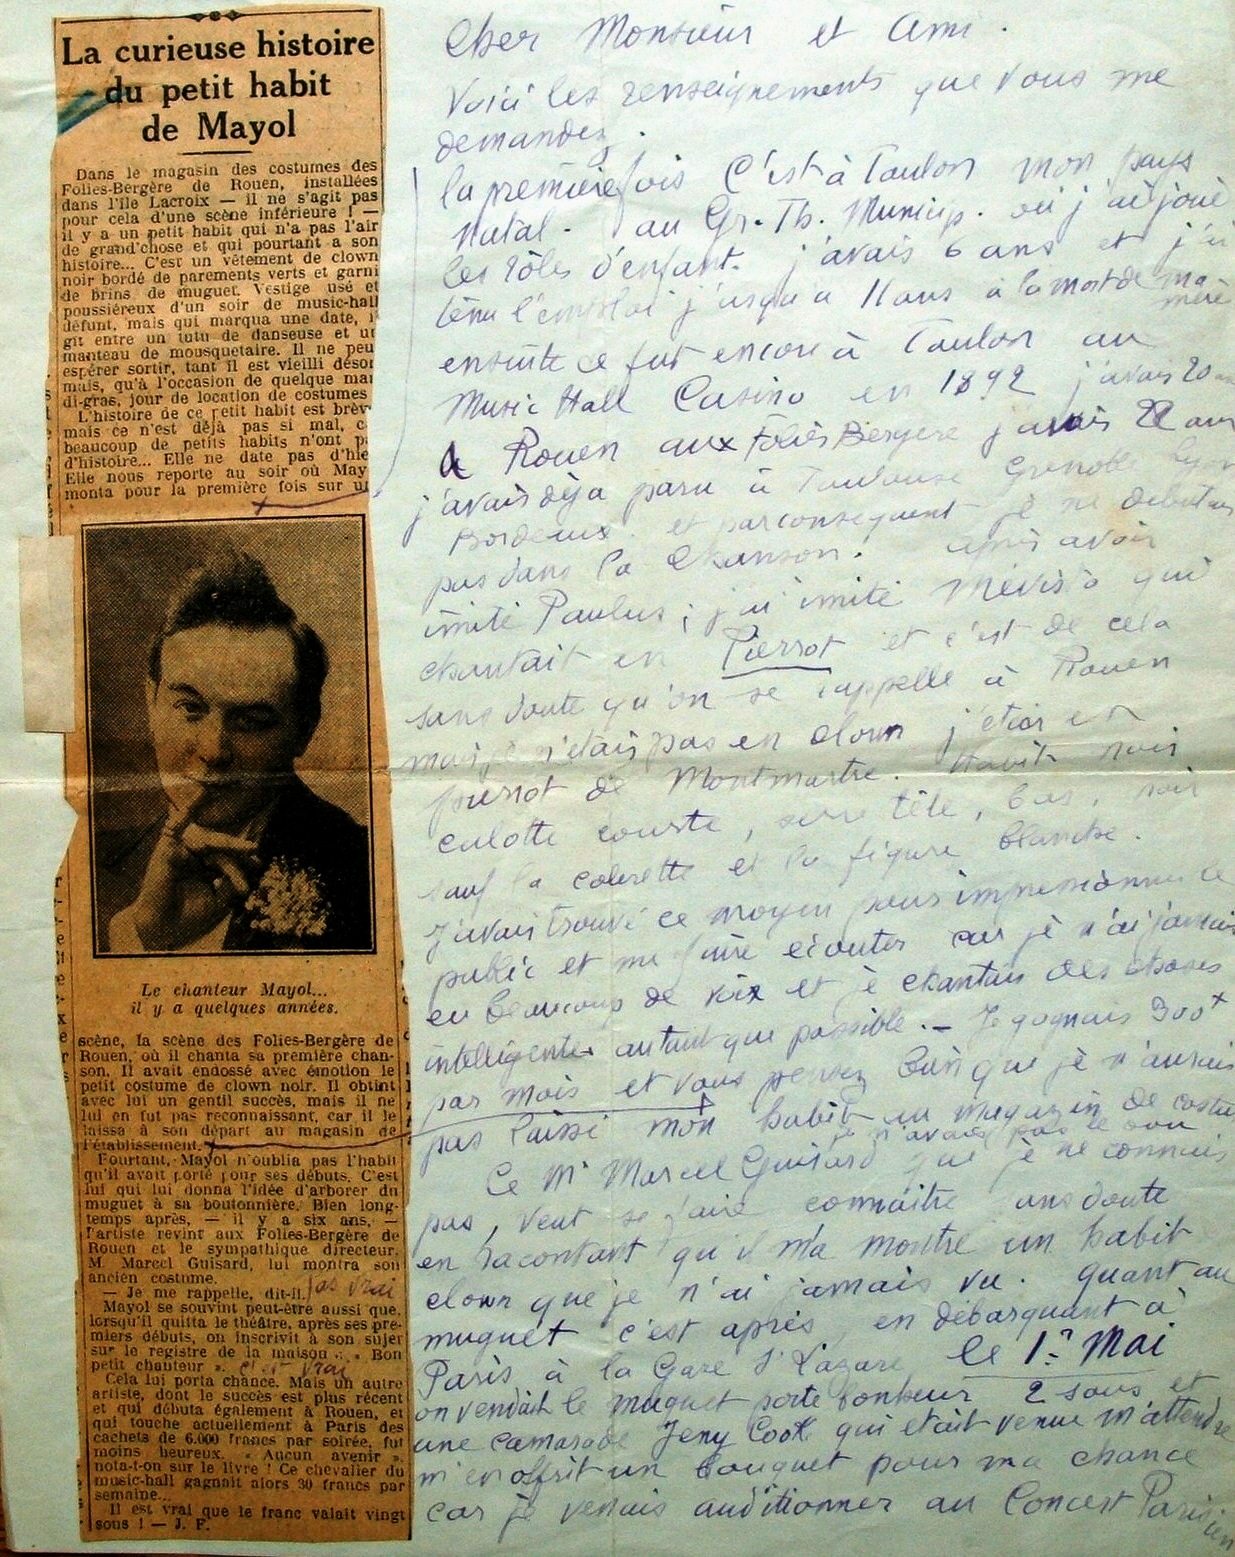 La curieuse histoire
du petit habit
de Mayol
Dans le magasin des costumes des
Folies-Bergère de Rouen, installées
dans l'île Lacroix — il ne s'agit pas
pour cela d'une scène inférieure ! —
il y a un petit habit qui n'a pas l'air
de grand'chose et qui pourtant a son
histoire... C'est un vêtement de clown
noir bordé de parements verts et garni
de brins de muguet. Vestige usé et
poussiéreux d'un soir de music-hall
défunt, mais qui marqua une date, i
gît entre un tutu de danseuse et un
manteau de mousquetaire. Il ne peu
espérer sortir, tant il est vieilli désor
mais, qu'à l'occasion de quelque mar
di-gras, jour de location de costumes
L'histoire de ce petit habit est brèv
mais ce n'est déjà pas si mal, c
beaucoup de petits habits n'ont p
d'histoire... Elle ne date pas d'hie
Elle nous reporte au soir où May
monta pour la première fois sur u
Le chanteur Mayol...
il y a quelques années.
scène, la scène des Folies-Bergère de
Rouen, où il chanta sa première chan-
son. Il avait endossé avec émotion le
petit costume de clown noir. Il obtint
avec lui un gentil succès, mais il ne
lui en fut pas reconnaissant, car il le
laissa à son départ au magasin de
l'établissement.
Pourtant, Mayol n'oublia pas l'habit
qu'il avait porté pour ses débuts. C'est
lui qui lui donna l'idée d'arborer du
muguet à sa boutonnière. Bien long-
temps après, — il y a six ans, —
l'artiste revint aux Folies-Bergère de
Rouen et le sympathique directeur,
M. Marcel Guisard, lui montra son
ancien costume.
— Je me rappelle, dit-il. pas vrai
Mayol se souvint peut-être aussi que,
lorsqu'il quitta le théâtre, après ses pre-
miers débuts, on inscrivit à son sujet
sur le registre de la maison : « Bon
petit chanteur ». c'est vrai
Cela lui porta chance. Mais un autre
artiste, dont le succès est plus récent
et qui débuta également à Rouen, et
qui touche actuellement à Paris des
cachets de 6.000 francs par soirée, fut
moins heureux. « Aucun avenir »,
nota-t-on sur le livre ! Ce chevalier du
music-hall gagnait alors 30 francs par
semaine...
Il est vrai que le franc valait vingt
sous ! — J. F.
Cher Monsieur et Ami.
Voici les renseignements que vous me
demandez.
la première fois C'est à Toulon mon pays
natal. au Gr. Th. Municip. où j'ai joué
les rôles d'enfant. j'avais 6 ans et j'ai
tenu l'emploi j'usqu'à 11 ans à la mort de ma
mère
ensuite ce fut encore à Toulon au
Music Hall Casino en 1892 j'avais 20 ans
A Rouen aux Folies Bergère j'avais 22 ans
j'avais déja paru à Toulouse Grenoble Lyon
Bordeaux et parconséquent je ne débutais
pas dans la Chanson. après avoir
imité Paulus ; j'ai imité Mévisto qui
chantait en Pierrot et c'est de cela
sans doute qu'on se rappelle à Rouen
mais je n'étais pas en clown j'étais en
pierrot de Montmartre. Habit noir
culotte courte, serre tête, bas, noir
sauf la colerette et la figure blanche.
J'avais trouvé ce moyen pour impressionner le
public et me faire écouter car je n'ai jamais
eu beaucoup de voix et je chantais des choses
intelligentes autant que possible. — Je gagnais 300 f
par mois et vous pensez bien que je n'aurais
pas laissé mon habit au magazin de costu
je n'avais pas le sou
Ce Mr Marcel Guisard que je ne connais
pas, veut se faire connaitre sans doute
en racontant qu'il m'a montré un habit
clown que je n'ai jamais vu. quant au
muguet c'est après en débarquant à
Paris à la Gare St Lazare le 1er Mai
on vendait le muguet porte bonheur 2 sous et
une camarade Jeny Cook qui etait venue m'attendre
m'en offrit un bouquet pour ma chance
car je venais auditionner au Concert Parisien